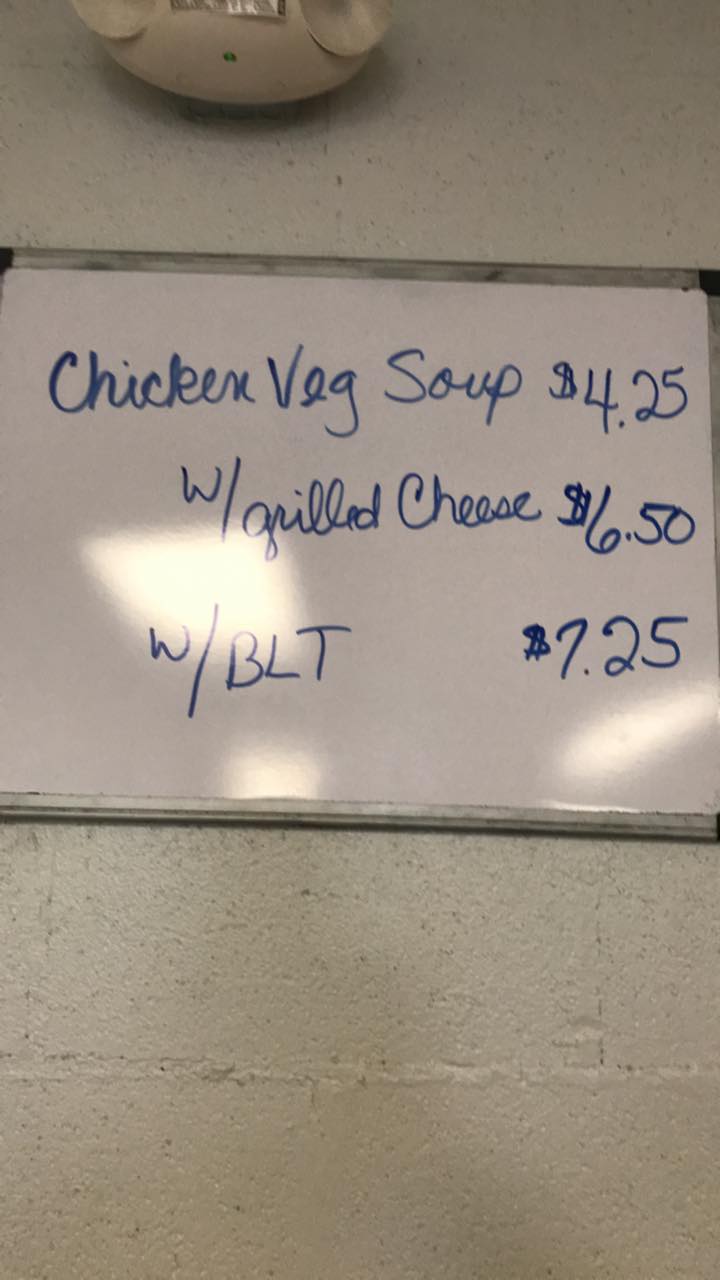 Chicken Veg Soup $4.25
w/grilled Cheese $6.50
w/BLT $7.25